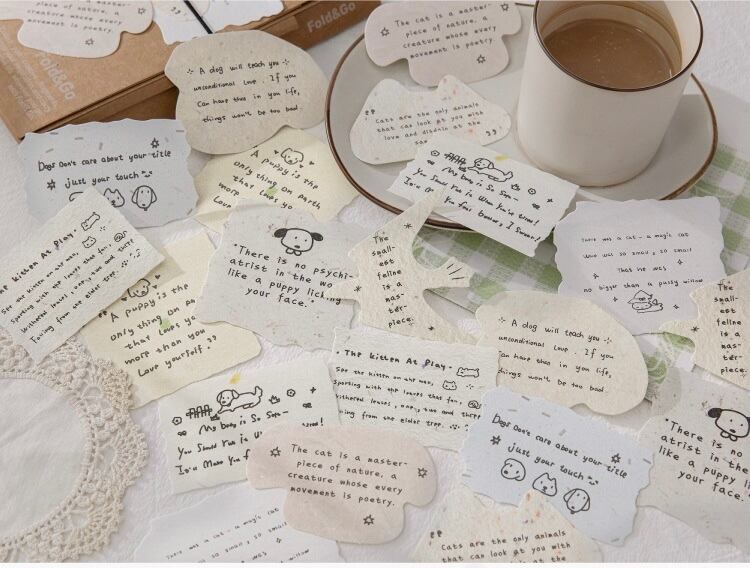 Fold&Go
Fold&Go
The cat is a master-
piece of nature, a
creature whose every
movement is poetry.
A dog will teach you
unconditional love. If you
Can have this in you life,
things won't be too bad.
Cats are the only animals
that can look at you with
love and disdain at the
Dogs Don't care about your title
just your touch
A puppy is the
only thing on earth
more
loves yo
My baby is So Sof
You Should Rub is When You're tired!
You feel better, I Swear!
The kitten At Play.
See the kitten on the wall,
Sporting with the leaves that fall,
Withered leaves, one, two and three
Falling from the elder tree.
There is no psychi-
atrist in the wo
like a puppy licking
your face.
The
small-
est
feline
is a
mas-
ter-
piece.
There was a cat - a magic cat
Who was so small, so small
That he was
no bigger than a pussy willow
The
small-
est
feline
is a
mas-
ter-
piece.
A puppy is the
only thing on
that loves yo
more than you
Love yourself.
A dog will teach you
unconditional love. If you
Can have this in you life,
things won't be too bad.
The kitten At Play.
See the kitten on the wall,
Sporting with the leaves that fa
Withered leaves, one, two and three
ing from the elder tree.
My baby is So Sof
You Should Rub is W
The cat is a master-
piece of nature, a
creature whose every
movement is poetry.
Dogs Don't care about your title
just your touch
There is no
atrist in the
like a puppy
your
There was a cat - a magic cat
Who was so small, so small
Cats are the only animals
that can look at you with